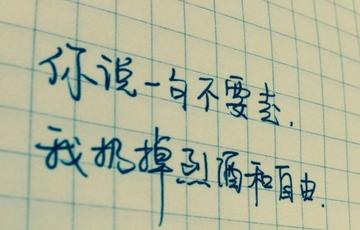 你说一句不要走.
我扔掉烈酒和自由.